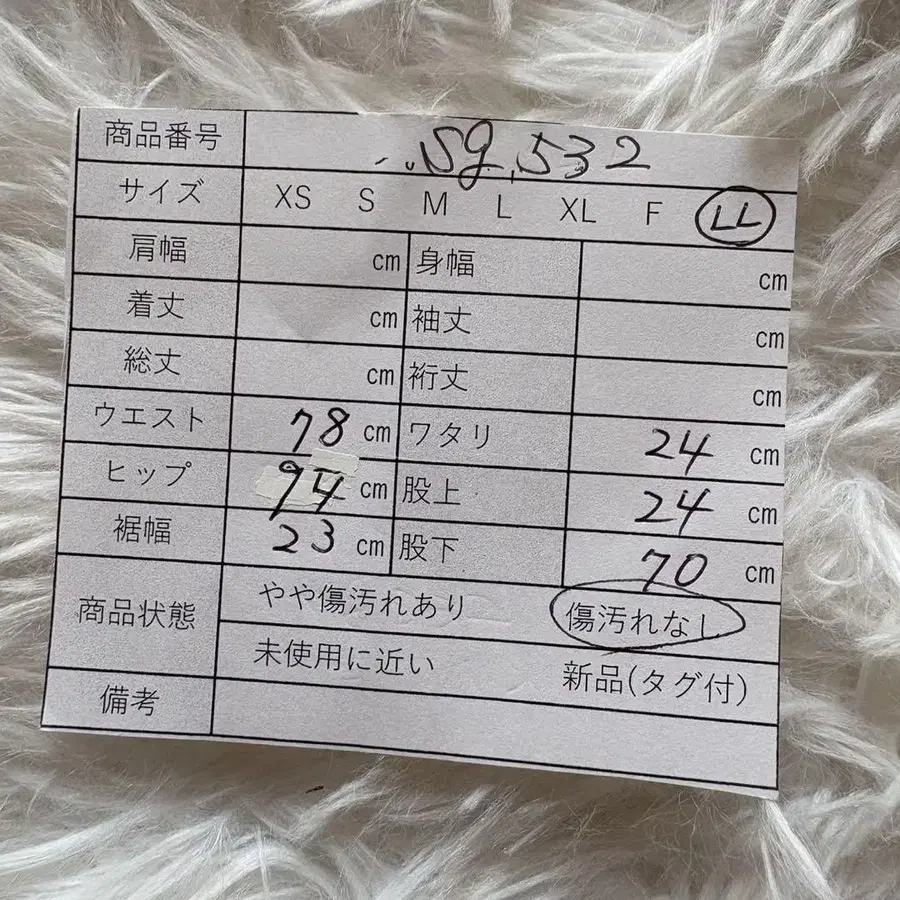 商品番号 sg.532
サイズ XS S M L XL F LL
肩幅 cm 身幅 cm
着丈 cm 袖丈 cm
総丈 cm 裄丈 cm
ウエスト 78 cm ワタリ 24 cm
ヒップ 94 cm 股上 24 cm
裾幅 23 cm 股下 70 cm
商品状態 やや傷汚れあり 傷汚れなし
未使用に近い 新品(タグ付)
備考